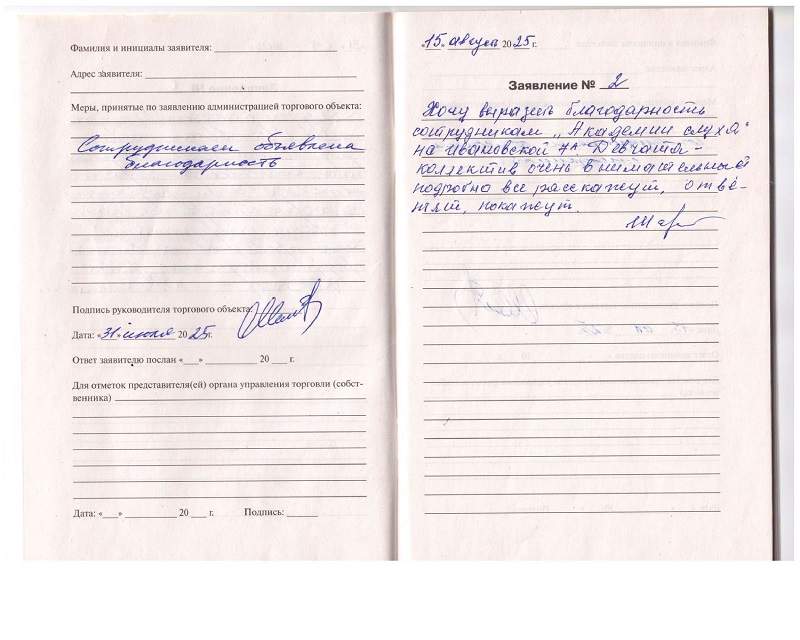 Фамилия и инициалы заявителя:
Адрес заявителя:
Меры, принятые по заявлению администрацией торгового объекта:
Сотрудникам объявлена
благодарность
Подпись руководителя торгового объекта:
Дата: «31» июля 2025 г.
Ответ заявителю послан «___» ____________ 20 ___ г.
Для отметок представителя(ей) органа управления торговли (собст-
венника)
Дата: «___» ____________ 20 ___ г. Подпись: ______
«15» августа 2025 г.
Заявление № 2
Хочу выразить благодарность
сотрудникам „Академии слуха"
на Ивановской 7А Девчата -
коллектив очень внимательный
подробно все расскажут, отве-
тят, покажут.